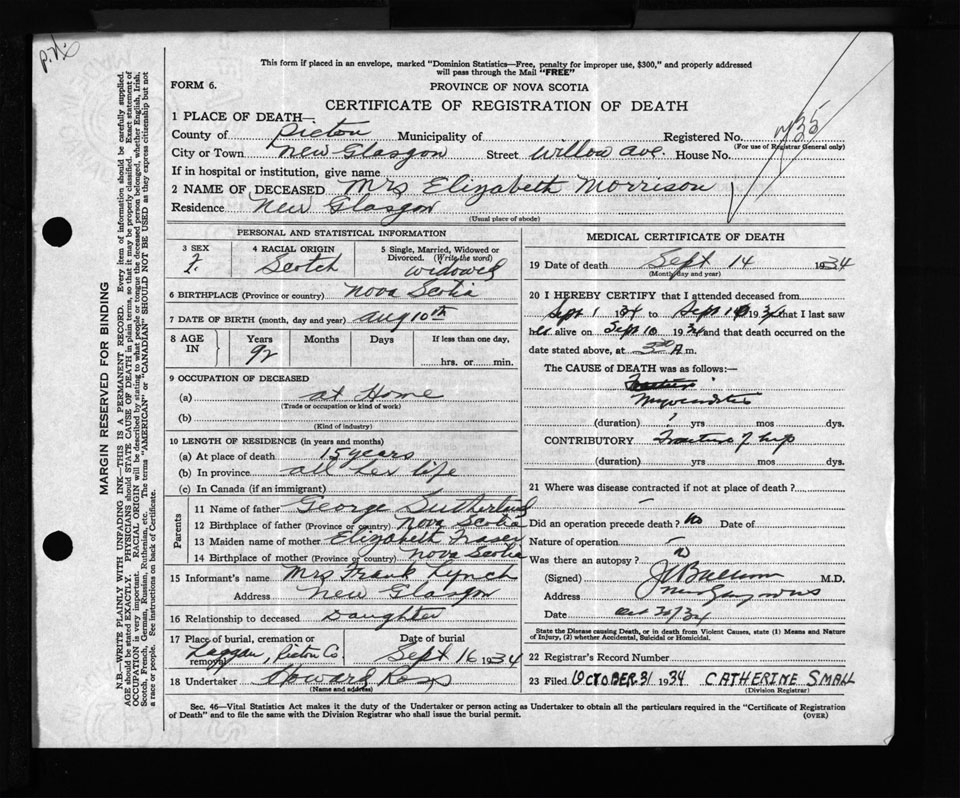 This form if placed in an envelope, marked "Dominion Statistics—Free, penalty for improper use, $300," and properly addressed
will pass through the Mail "FREE"
FORM 6.
PROVINCE OF NOVA SCOTIA
CERTIFICATE OF REGISTRATION OF DEATH
1 PLACE OF DEATH—
County of Pictou Municipality of Registered No. 735
(For use of Registrar General only)
City or Town New Glasgow Street Willow Ave. House No.
If in hospital or institution, give name
2 NAME OF DECEASED Mrs Elizabeth Morrison
Residence New Glasgow
(Usual place of abode)
MARGIN RESERVED FOR BINDING
N.B.—WRITE PLAINLY WITH UNFADING INK—THIS IS A PERMANENT RECORD. Every item of information should be carefully supplied.
AGE should be stated EXACTLY. PHYSICIANS should STATE CAUSE OF DEATH in plain terms, so that it may be properly classified. Exact statement of
OCCUPATION is very important. RACIAL ORIGIN will be described by stating to what people or tongue the deceased person belonged, whether English, Irish,
Scotch, French, German, Russian, Ruthenian, etc. The terms "AMERICAN" or "CANADIAN" SHOULD NOT BE USED as they express citizenship but not
a race or people. See instructions on back of Certificate.
PERSONAL AND STATISTICAL INFORMATION
3 SEX
F.
4 RACIAL ORIGIN
Scotch
5 Single, Married, Widowed or
Divorced. (Write the word)
widowed
6 BIRTHPLACE (Province or country) Nova Scotia
7 DATE OF BIRTH (month, day and year) Aug 10th
8 AGE IN
Years Months Days If less than one day,
92 hrs. or min.
9 OCCUPATION OF DECEASED
(a) at Home
(Trade or occupation or kind of work)
(b)
(Kind of industry)
10 LENGTH OF RESIDENCE (in years and months)
(a) At place of death 15 years
(b) In province all her life
(c) In Canada (if an immigrant)
Parents
11 Name of father George Sutherland
12 Birthplace of father (Province or country) Nova Scotia
13 Maiden name of mother Elizabeth Fraser
14 Birthplace of mother (Province or country) Nova Scotia
15 Informant's name Mrs Frank Lynch
Address New Glasgow
16 Relationship to deceased Daughter
17 Place of burial, cremation or
removal Laggan, Pictou Co
Date of burial
Sept 16 1934
18 Undertaker Howard Ross
(Name and address)
MEDICAL CERTIFICATE OF DEATH
19 Date of death Sept 14 1934
(Month, day and year)
20 I HEREBY CERTIFY that I attended deceased from
Sept 1 1934 to Sept 1934 that I last saw
her alive on Sept 10 1934 and that death occurred on the
date stated above, at A m.
The CAUSE of DEATH was as follows:—
Myocarditis
(duration) ? yrs mos dys.
CONTRIBUTORY Fracture of hip
(duration) yrs mos dys.
21 Where was disease contracted if not at place of death?
Did an operation precede death? No Date of
Nature of operation
Was there an autopsy?
(Signed) M.D.
Address
Date
State the Disease causing Death, or in death from Violent Causes, state (1) Means and Nature
of Injury, (2) whether Accidental, Suicidal or Homicidal.
22 Registrar's Record Number
23 Filed OCTOBER 31 1934 CATHERINE SMALL
(Division Registrar)
Sec. 46—Vital Statistics Act makes it the duty of the Undertaker or person acting as Undertaker to obtain all the particulars required in the "Certificate of Registration
of Death" and to file the same with the Division Registrar who shall issue the burial permit.
(OVER)